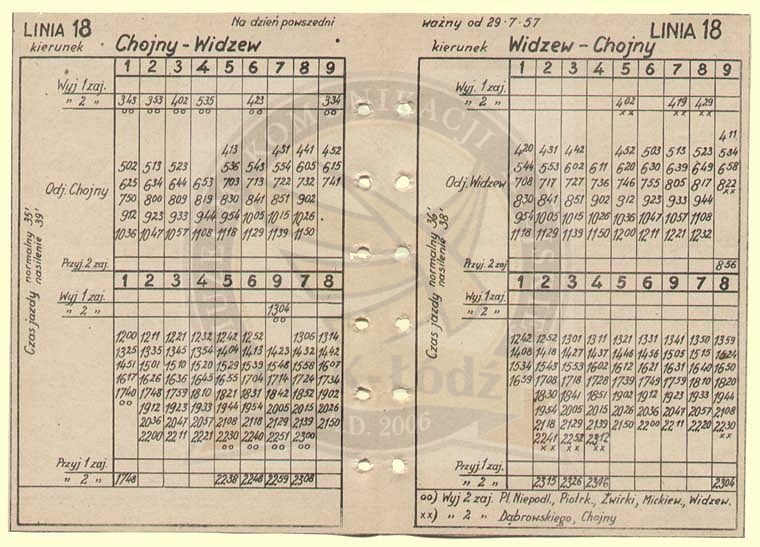 LINIA 18
Na dzień powszedni
kierunek Chojny - Widzew
1 2 3 4 5 6 7 8 9
Wyj 1 zaj.
" 2 " 343 353 402 535 423 334
oo oo oo oo oo oo
413 431 441 452
502 513 523 536 543 554 605 615
Odj. Chojny 625 634 644 653 703 713 722 732 741
750 800 809 819 830 841 851 902
912 923 933 944 954 1005 1015 1026
1036 1047 1057 1108 1118 1129 1139 1150
Przyj. 2 zaj.
1 2 3 4 5 6 9 7 8
Wyj 1 zaj.
" 2 " 1304
oo
1200 1211 1221 1232 1242 1252 1306 1314
1325 1335 1345 1354 1404 1413 1423 1432 1442
1451 1501 1510 1520 1529 1539 1548 1558 1607
1617 1626 1636 1645 1655 1704 1714 1724 1734
1740 1748 1759 1810 1821 1831 1842 1852 1902
oo 1912 1923 1933 1944 1954 2005 2015 2026
2036 2047 2057 2108 2118 2129 2139 2150
2200 2211 2221 2230 2240 2251 2300
oo oo oo oo
Przyj 1 zaj.
" 2 " 1748 2238 2248 2259 2308
Czas jazdy normalny 35'
nasilenie 39'
ważny od 29·7·57
LINIA 18
kierunek Widzew - Chojny
1 2 3 4 5 6 7 8 9
Wyj 1 zaj.
" 2 " 402 419 429
xx xx xx
411
420 431 442 452 503 513 523 534
544 553 602 611 620 630 639 649 658
Odj. Widzew 708 717 727 736 746 755 805 817 822
830 841 851 902 912 923 933 944 xx
954 1005 1015 1026 1036 1047 1057 1108
1118 1129 1139 1150 1200 1211 1221 1232
Przyj. 2 zaj 856
1 2 3 4 5 6 9 7 8
Wyj 1 zaj.
" 2 "
1242 1252 1301 1311 1321 1331 1341 1350 1359
1408 1418 1427 1437 1446 1456 1505 1515 1624
1534 1543 1553 1602 1612 1621 1631 1640 1650
1659 1708 1718 1728 1739 1749 1759 1810 1820
1830 1841 1851 1902 1912 1923 1933 1944
1954 2005 2015 2026 2036 2047 2057 2108
2118 2129 2139 2150 2200 2211 2220 2230
2241 2252 2312 xx
xx xx xx
Przyj 1 zaj.
" 2 " 2315 2326 2346 2304
Czas jazdy normalny 36'
nasilenie 38'
oo) Wyj 2 zaj. Pl. Niepodl., Piotrk., Żwirki, Mickiew., Widzew.
xx) " 2 " Dąbrowskiego, Chojny
KOMUNIKACJI
K-Łódź
D. 2006